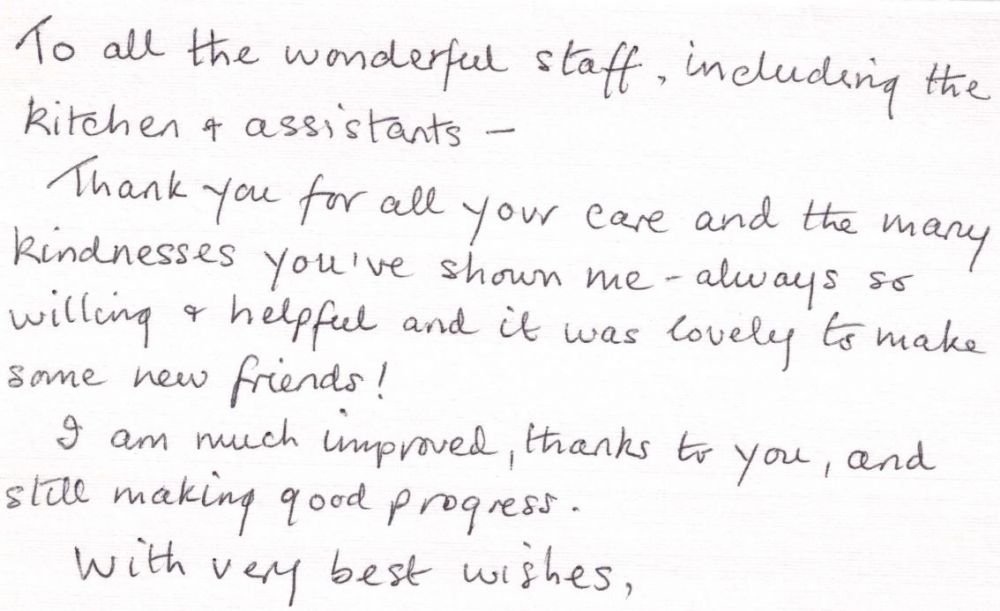 To all the wonderful staff, including the
kitchen & assistants –
Thank you for all your care and the many
kindnesses you've shown me – always so
willing & helpful and it was lovely to make
some new friends!
I am much improved, thanks to you, and
still making good progress.
With very best wishes,